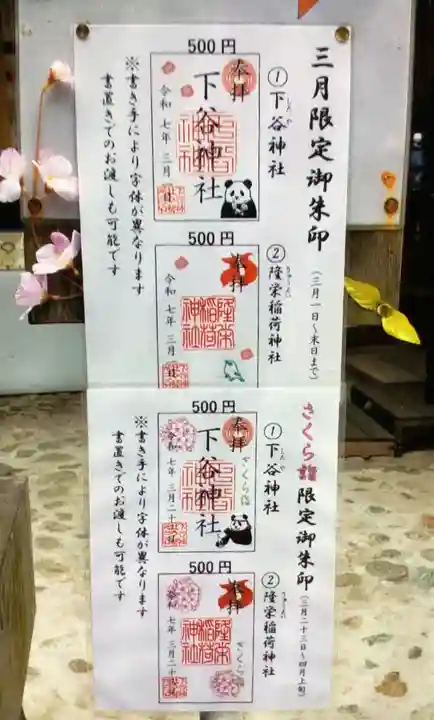 三月限定御朱印
(三月一日~末日まで)
500円
①下谷神社
したや
奉拝
下谷神社
令和七年三月 日
500円
②隆栄稲荷神社
奉拝
隆栄
稲荷
神社
令和七年三月 日
※書き手により字体が異なります
書置きでのお渡しも可能です
さくら詣限定御朱印
(三月二十三日~四月上旬)
500円
①下谷神社
したや
奉拝
さくら詣
下谷神社
令和七年三月二十
500円
②隆栄稲荷神社
奉拝
さくら
隆栄
稲荷
神社
令和七年三月二十
※書き手により字体が異なります
書置きでのお渡しも可能です